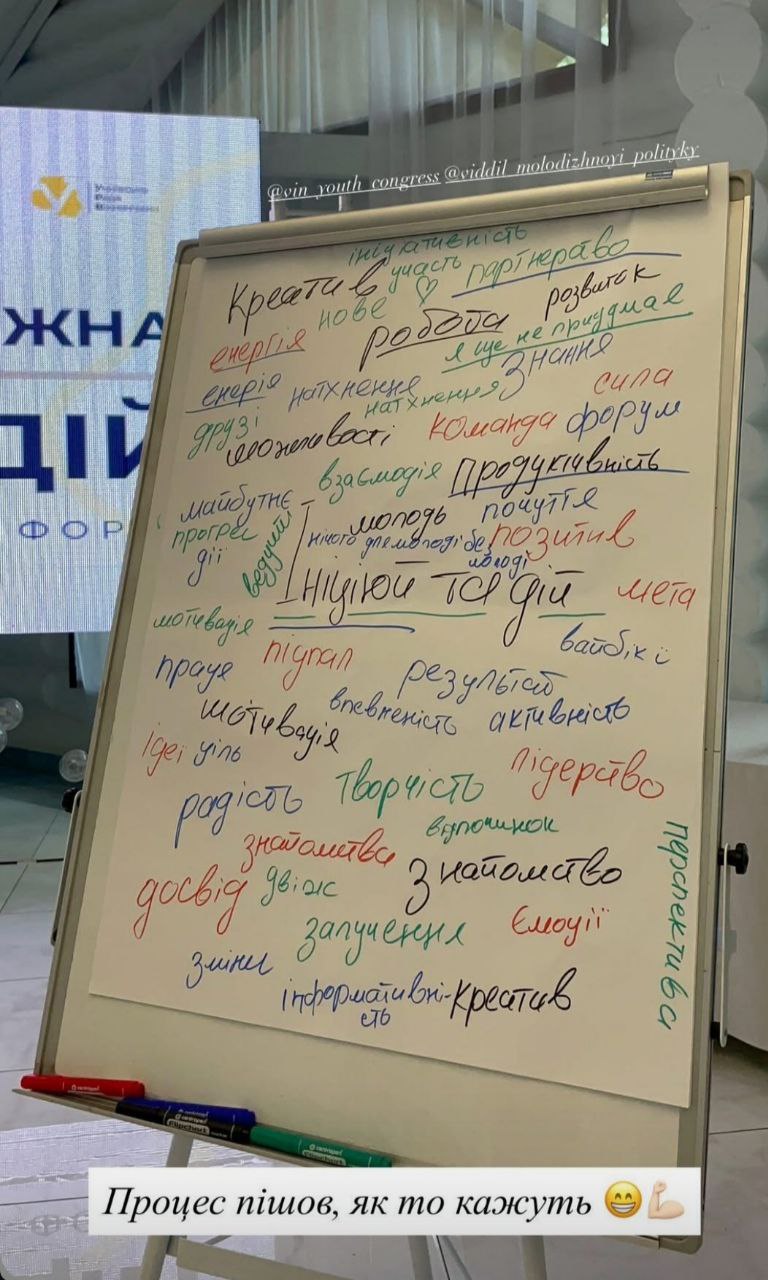 @vin_youth_congress @viddil_molodizhnoyi_polityky
ЖНА
ДІЙ
ФОР
ініціативність
Креатив участь партнерство
нове ♡ розвиток
енергія робота я ще не придумав
енерія натхнення Знання
друзі натхнення сила
можливості команда форум
взаємодія Продуктивність
майбутнє молодь почуття
прогрес нічого для молоді без молоді позитив
дії ведучі
Ініціюй та дій мета
мотивація вайбікі
праця підпал результат
мотивація впевненість активність
Ідеї ціль лідерство
радість творчість
відпочинок
знайомства Знайомство
досвід двіж
залучення Ємоції
зміни перспектива
інформативні-
сть
Креатив
Flipchart
Процес пішов, як то кажуть 😁💪🏻